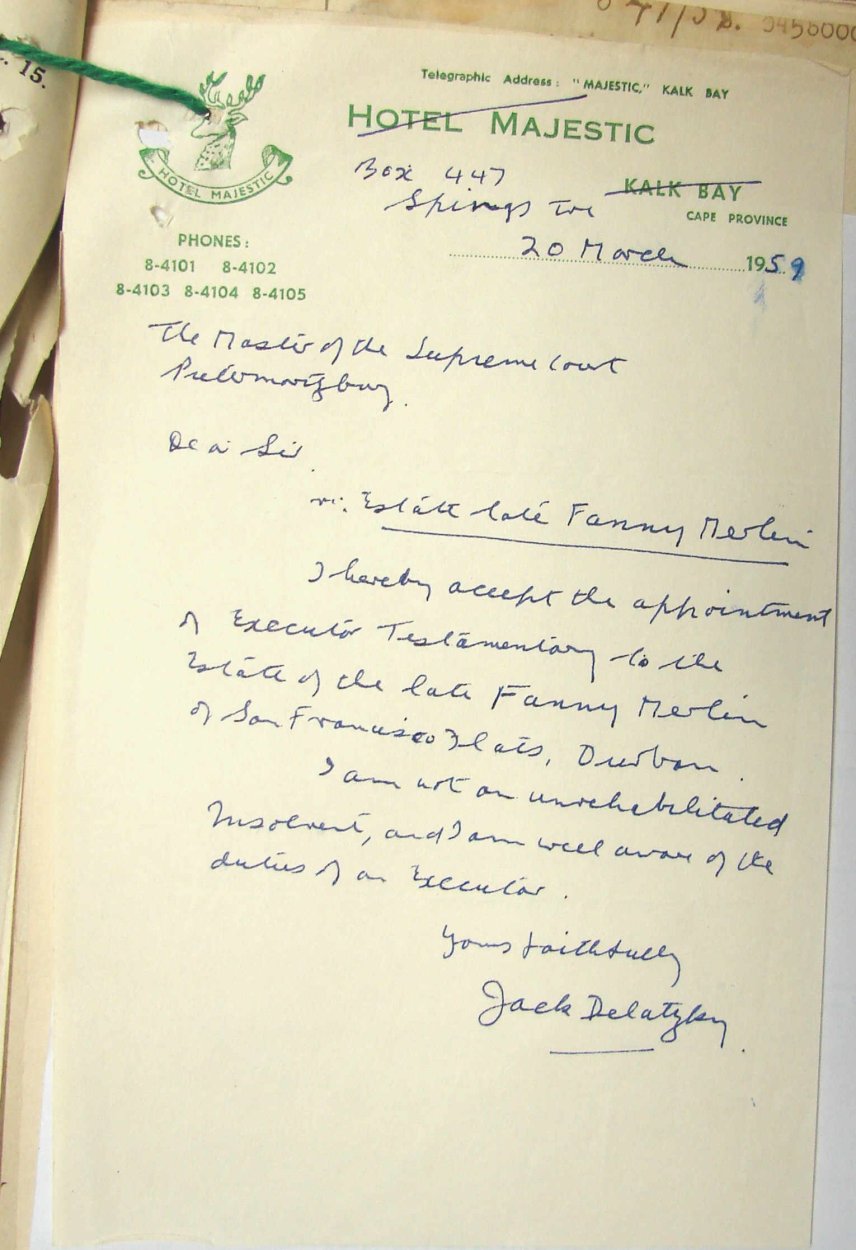 15.
Telegraphic Address: "MAJESTIC," KALK BAY
HOTEL MAJESTIC
HOTEL MAJESTIC
Box 447
KALK BAY
Springs Tvl
CAPE PROVINCE
20 March 1959
PHONES:
8-4101 8-4102
8-4103 8-4104 8-4105
The Master of the Supreme Court
Pietermaritzburg.
Dear Sir
re: Estate late Fanny Merlin
I hereby accept the appointment
of Executor Testamentary to the
Estate of the late Fanny Merlin
of San Francisco Flats, Durban.
I am not an unrehabilitated
Insolvent, and I am well aware of the
duties of an Executor.
Yours faithfully
Jack Delatzky.